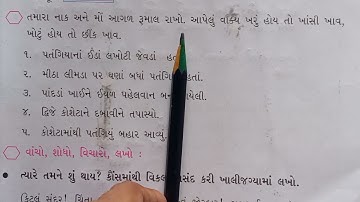 તમારા નાક અને મોં આગળ રૂમાલ રાખો. આપેલું વાક્ય ખરું હોય તો ખાંસી ખાવ,
ખોટું હોય તો છીંક ખાવ.
૧. પતંગિયાનાં ઈંડાં લખોટી જેવડાં
૨. મીઠા લીમડા પર ઘણાં બધાં હતાં.
૩. પાંદડાં ખાઈને ઈયળ પહેલવાન
૪. દ્વિજે કોશેટાને દબાવીને તપાસ્યો.
૫. કોશેટામાંથી પતંગિયું બહાર આવ્યું.
વાંચો, શોધો, વિચારો, લખો :
• ત્યારે તમને શું થાય? કૌંસમાંથી પસંદ કરી ખાલીજગ્યામાં લખો.
કેટલું સુંદર!